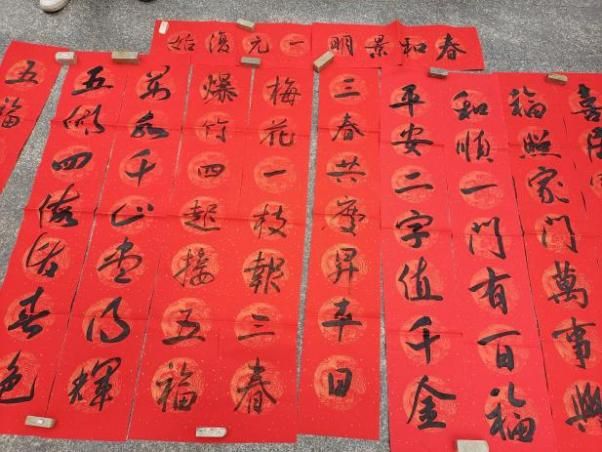 春和景明一元復始
喜
福照家門萬事興
和順一門有百福
平安二字值千金
三春共慶昇平日
梅花一枝報三春
爆竹四起接五福
萬水千山盡得輝
五湖四海皆春色
五福